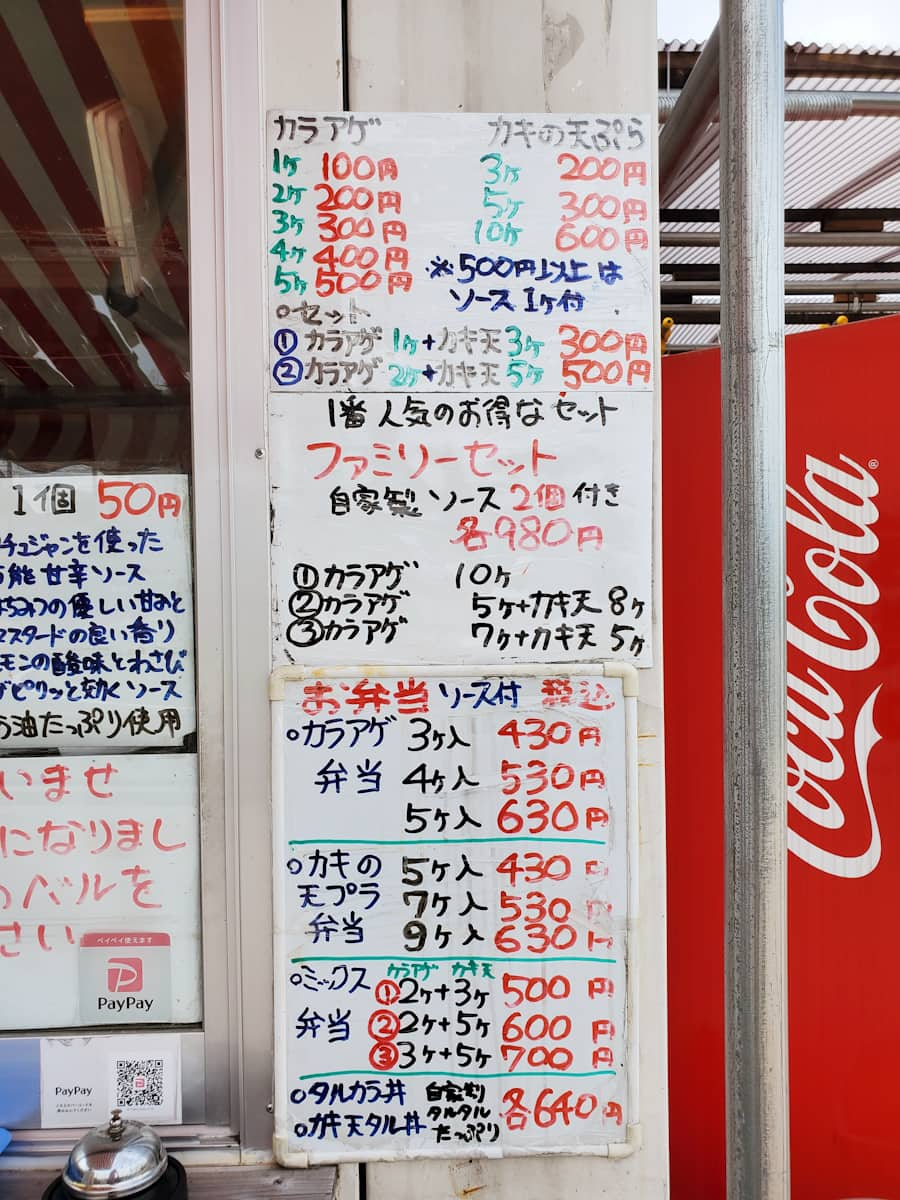 カラアゲ
1ヶ 100円
2ヶ 200円
3ヶ 300円
4ヶ 400円
5ヶ 500円
カキの天ぷら
3ヶ 200円
5ヶ 300円
10ヶ 600円
※500円以上は
ソース1ケ付
○セット
①カラアゲ 1ヶ+カキ天 3ヶ 300円
②カラアゲ 2ヶ+カキ天 5ヶ 500円
1番人気のお得なセット
ファミリーセット
自家製ソース2個付き
各980円
①カラアゲ 10ヶ
②カラアゲ 5ヶ+カキ天 8ヶ
③カラアゲ 7ヶ+カキ天 5ヶ
お弁当 ソース付 税込
○カラアゲ 3ヶ入 430円
弁当 4ヶ入 530円
5ヶ入 630円
○カキの 5ヶ入 430円
天プラ 7ヶ入 530円
弁当 9ヶ入 630円
カラアゲ カキ天
○ミックス ①2ヶ+3ヶ 500円
弁当 ②2ヶ+5ヶ 600円
③3ヶ+5ヶ 700円
○タルカラ丼 自家製り
○カキ天タル丼 タルタル
たっぷり
各640円
1個 50円
チュジャンを使った
能 甘辛ソース
はちみつの優しい甘みと
マスタードの良い香り
モンの酸味とわさび
ピリッと効くソース
油たっぷり使用
いませ
になりまし
ベルを
さい
ペイペイ使えます
PayPay
PayPay
Coca-Cola®